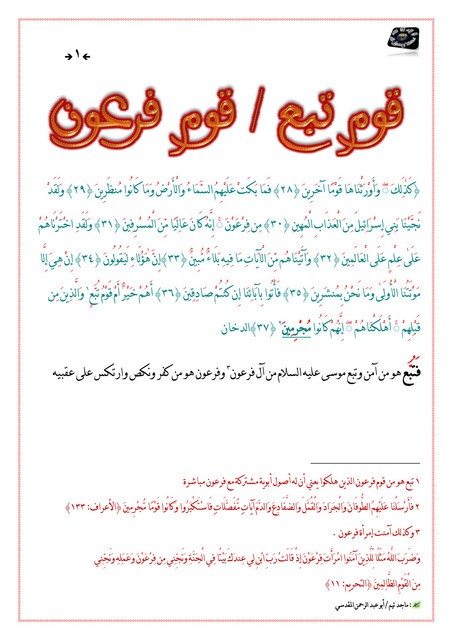 ١
قوم تبع / قوم فرعون
﴿كَذَٰلِكَ ۖ وَأَوْرَثْنَاهَا قَوْمًا آخَرِينَ ﴿٢٨﴾ فَمَا بَكَتْ عَلَيْهِمُ السَّمَاءُ وَالْأَرْضُ وَمَا كَانُوا مُنظَرِينَ ﴿٢٩﴾ وَلَقَدْ
نَجَّيْنَا بَنِي إِسْرَائِيلَ مِنَ الْعَذَابِ الْمُهِينِ ﴿٣٠﴾ مِن فِرْعَوْنَ ۚ إِنَّهُ كَانَ عَالِيًا مِّنَ الْمُسْرِفِينَ ﴿٣١﴾ وَلَقَدِ اخْتَرْنَاهُمْ
عَلَىٰ عِلْمٍ عَلَى الْعَالَمِينَ ﴿٣٢﴾ وَآتَيْنَاهُم مِّنَ الْآيَاتِ مَا فِيهِ بَلَاءٌ مُّبِينٌ ﴿٣٣﴾ إِنَّ هَٰؤُلَاءِ لَيَقُولُونَ ﴿٣٤﴾ إِنْ هِيَ إِلَّا
مَوْتَتُنَا الْأُولَىٰ وَمَا نَحْنُ بِمُنشَرِينَ ﴿٣٥﴾ فَأْتُوا بِآبَائِنَا إِن كُنتُمْ صَادِقِينَ ﴿٣٦﴾ أَهُمْ خَيْرٌ أَمْ قَوْمُ تُبَّعٍ ١ وَالَّذِينَ مِن
قَبْلِهِمْ ۚ أَهْلَكْنَاهُمْ ۖ إِنَّهُمْ كَانُوا مُجْرِمِينَ ٢ ﴿٣٧﴾ الدخان
فتُبَّع هو من آمن وتبع موسى عليه السلام من آل فرعون ٣ وفرعون هو من كفر ونكص وارتكس على عقبيه
١ تبع هو من قوم فرعون الذين هلكوا يعني أن له أصول أبوية مشتركة مع فرعون مباشرة
٢ فَأَرْسَلْنَا عَلَيْهِمُ الطُّوفَانَ وَالْجَرَادَ وَالْقُمَّلَ وَالضَّفَادِعَ وَالدَّمَ آيَاتٍ مُّفَصَّلَاتٍ فَاسْتَكْبَرُوا وَكَانُوا قَوْمًا مُّجْرِمِينَ ﴿الأعراف: ١٣٣﴾
٣ وكذلك آمنت إمرأة فرعون .
وَضَرَبَ اللَّهُ مَثَلًا لِّلَّذِينَ آمَنُوا امْرَأَتَ فِرْعَوْنَ إِذْ قَالَتْ رَبِّ ابْنِ لِي عِندَكَ بَيْتًا فِي الْجَنَّةِ وَنَجِّنِي مِن فِرْعَوْنَ وَعَمَلِهِ وَنَجِّنِي
مِنَ الْقَوْمِ الظَّالِمِينَ ﴿التحريم: ١١﴾
: ماجد تيم / أبو عبد الرحمن المقدسي